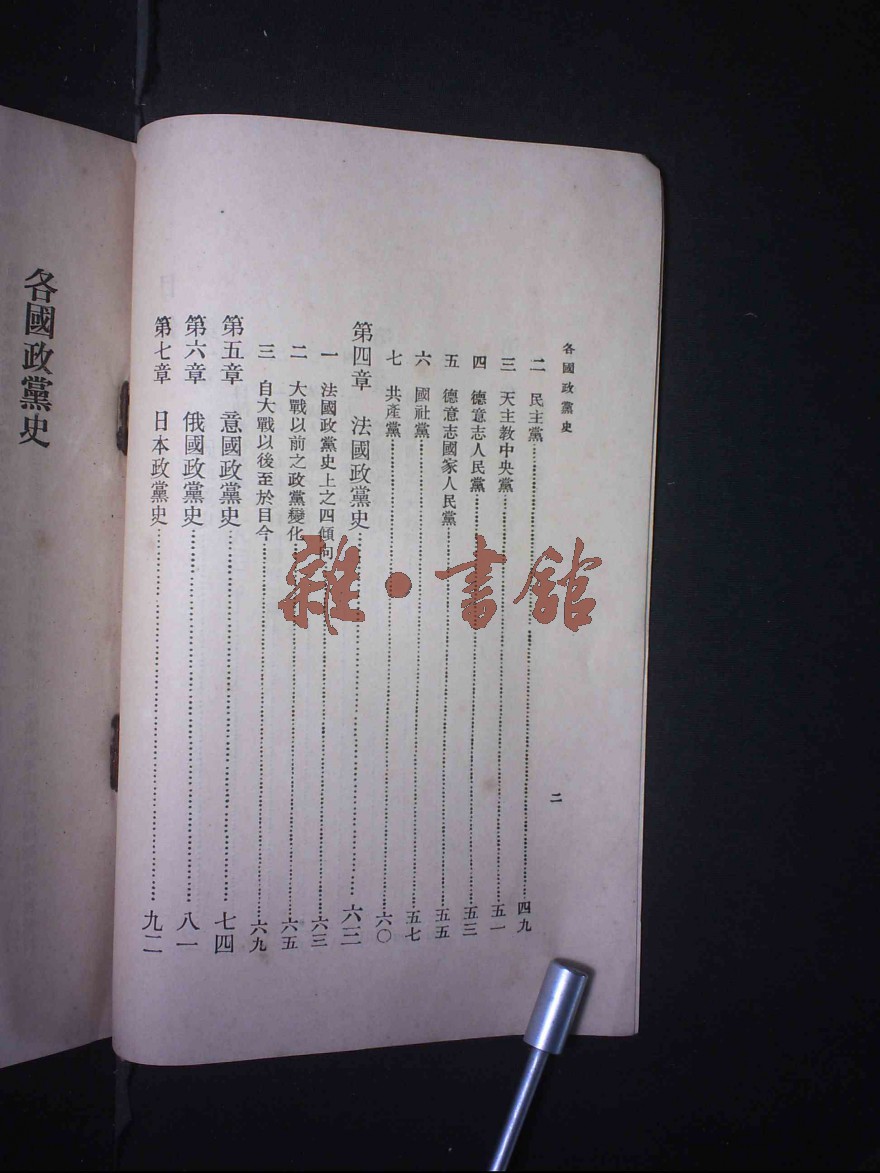 各國政黨史
二
二　民主黨……四九
三　天主教中央黨……五一
四　德意志人民黨……五三
五　德意志國家人民黨……五五
六　國社黨……五七
七　共產黨……六〇
第四章　法國政黨史……六三
一　法國政黨史上之四傾向……六三
二　大戰以前之政黨變化……六五
三　自大戰以後至於目今……六九
第五章　意國政黨史……七四
第六章　俄國政黨史……八一
第七章　日本政黨史……九二
各國政黨史
雜·書館